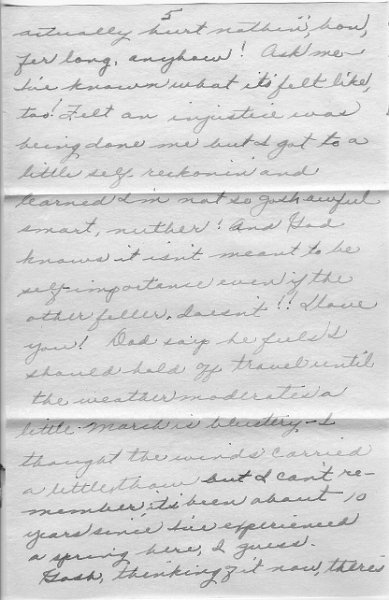 5
actually hurt nothin', how,
fer long, anyhow! Ask me
I've known what it's felt like,
too! Felt an injustice was
being done me but I got to a
little self reckonin' and
learned I'm not so gosh awful
smart, neither! And God
knows it isn't meant to be
self-importance even if the
other feller, doesn't!! I love
you! Dad says he feels I
should hold off travel until
the weather moderates a
little. March is blustery - I
thought the winds carried
a little thaw but I can't re-
member, it's been about 10
years since I've experienced
a spring here, I guess.
Gosh, thinking of it now, there's